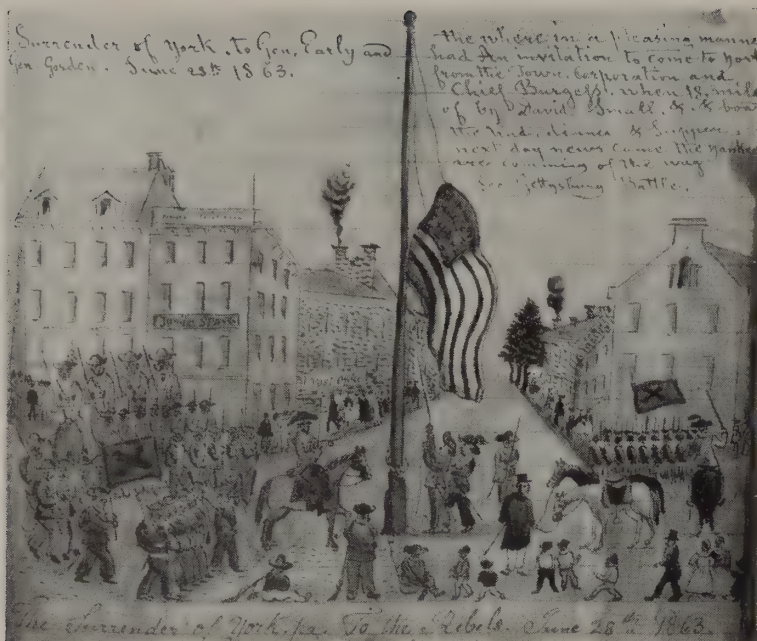 Surrender of York to Gen. Early and
Gen Gorden. June 28th 1863.
the where in a pleasing manner
had An invitation to come to York
from the Town, Corporation and
Chief Burgess, when 18 mile
of by David Small, &
had dinner & Supper.
next day news came the Yankee
are comming of the way
See Gettysburg Battle.
The Surrender of York, pa. To the Rebels June 28th 1863.